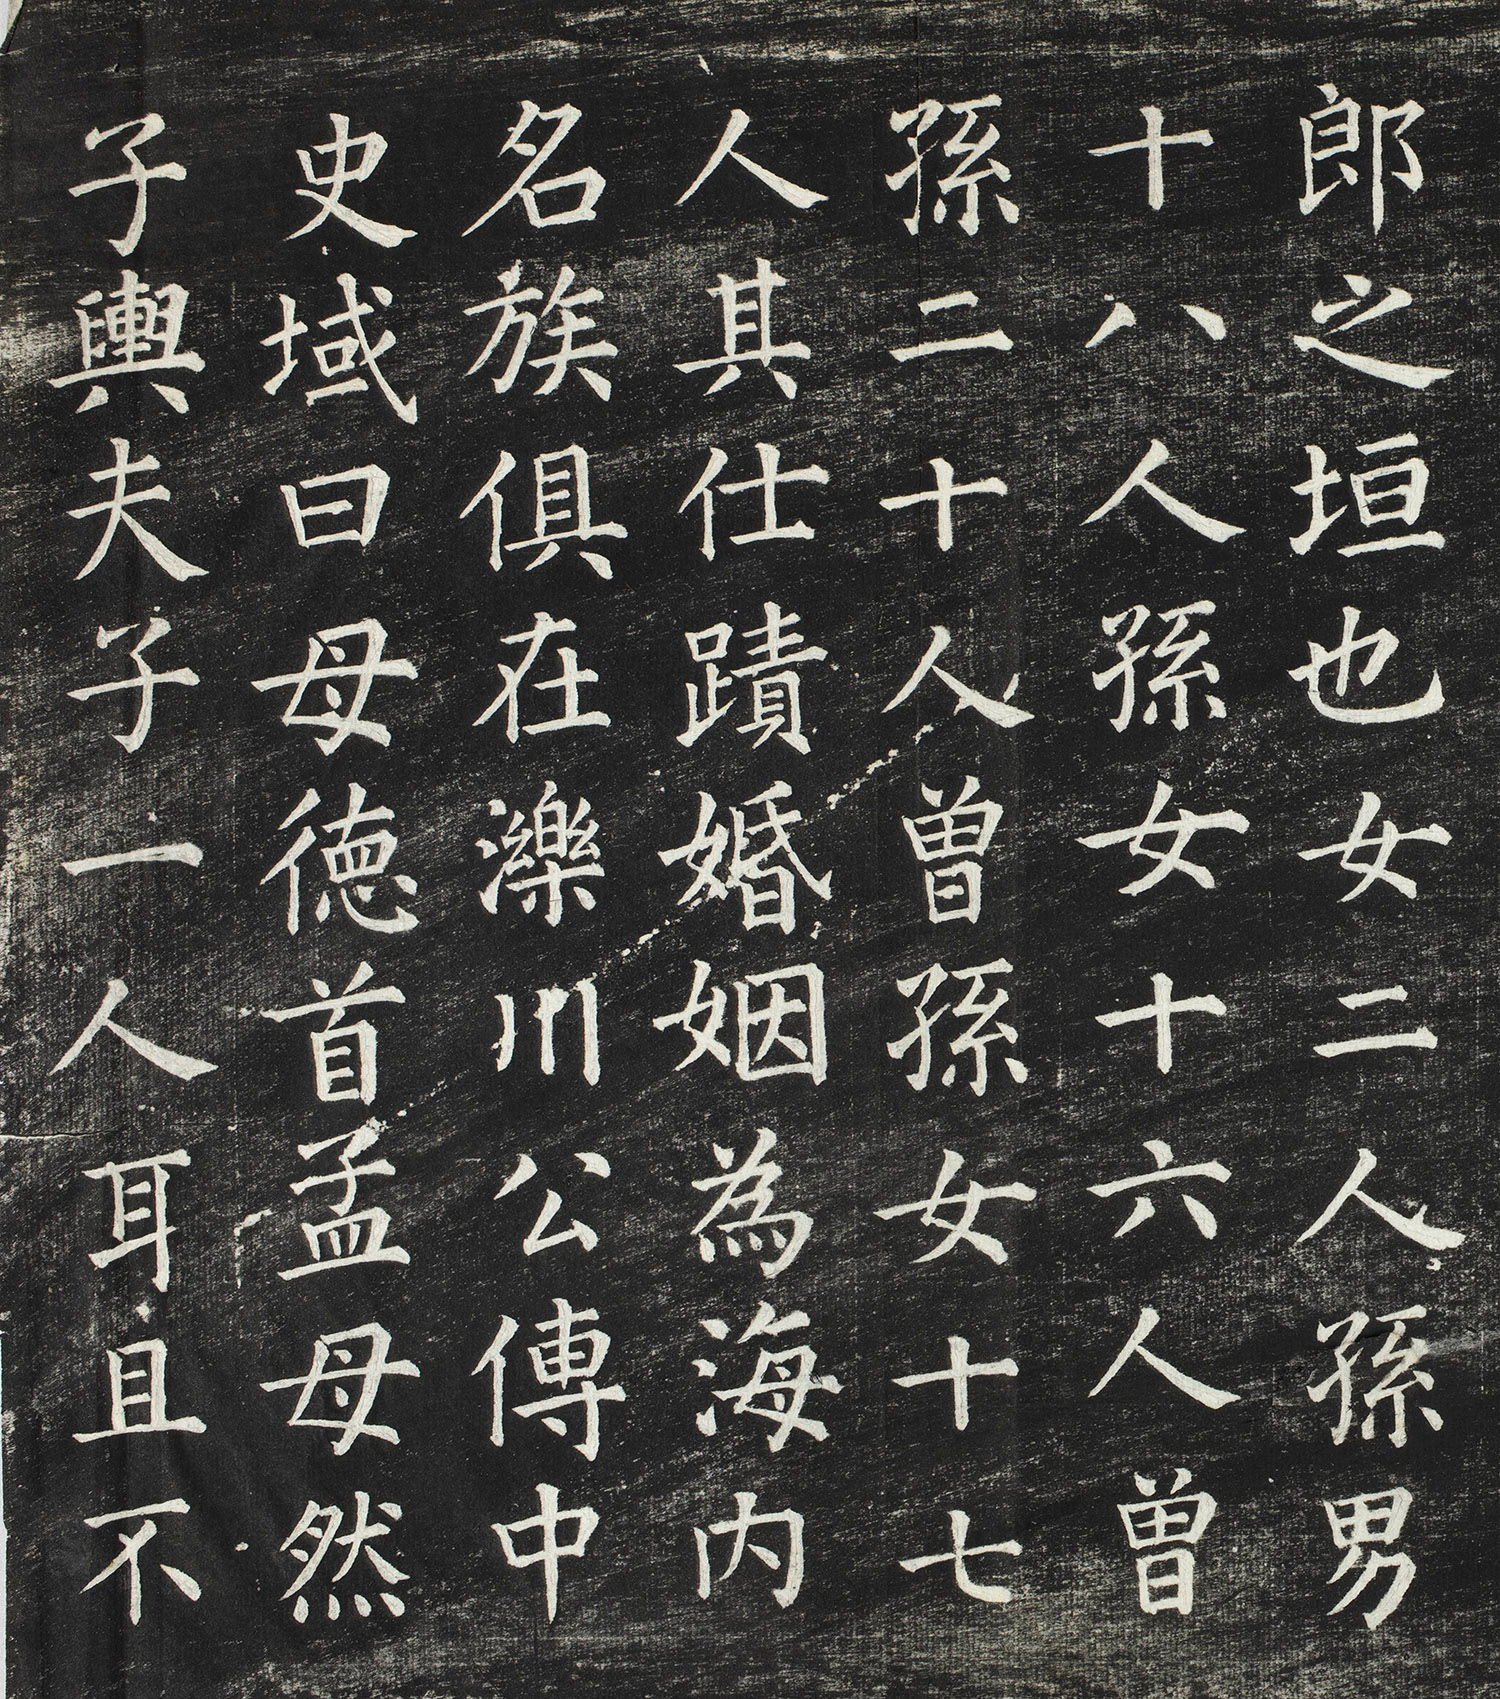 郎之垣也女二人孫男
十八人孫女十六人曾
孫二十人曾孫女十七
人其仕蹟婚姻為海内
名族俱在濼川公傳中
史域曰母徳首孟母然
子輿夫子一人耳且不